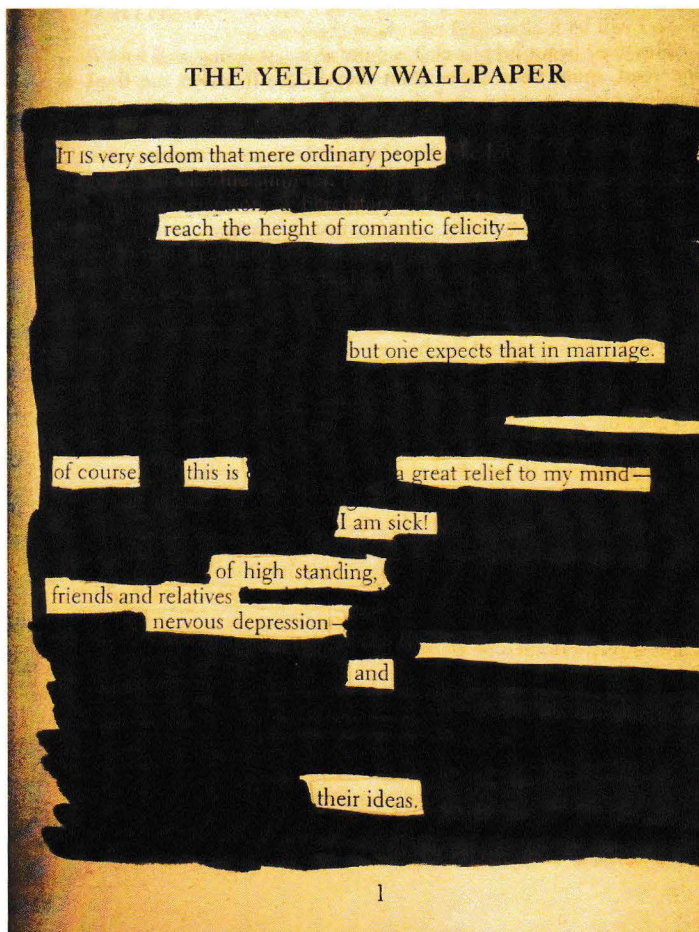 THE YELLOW WALLPAPER
IT IS very seldom that mere ordinary people
reach the height of romantic felicity—
but one expects that in marriage.
of course, this is a great relief to my mind—
I am sick!
of high standing,
friends and relatives
nervous depression—
and
their ideas.
1